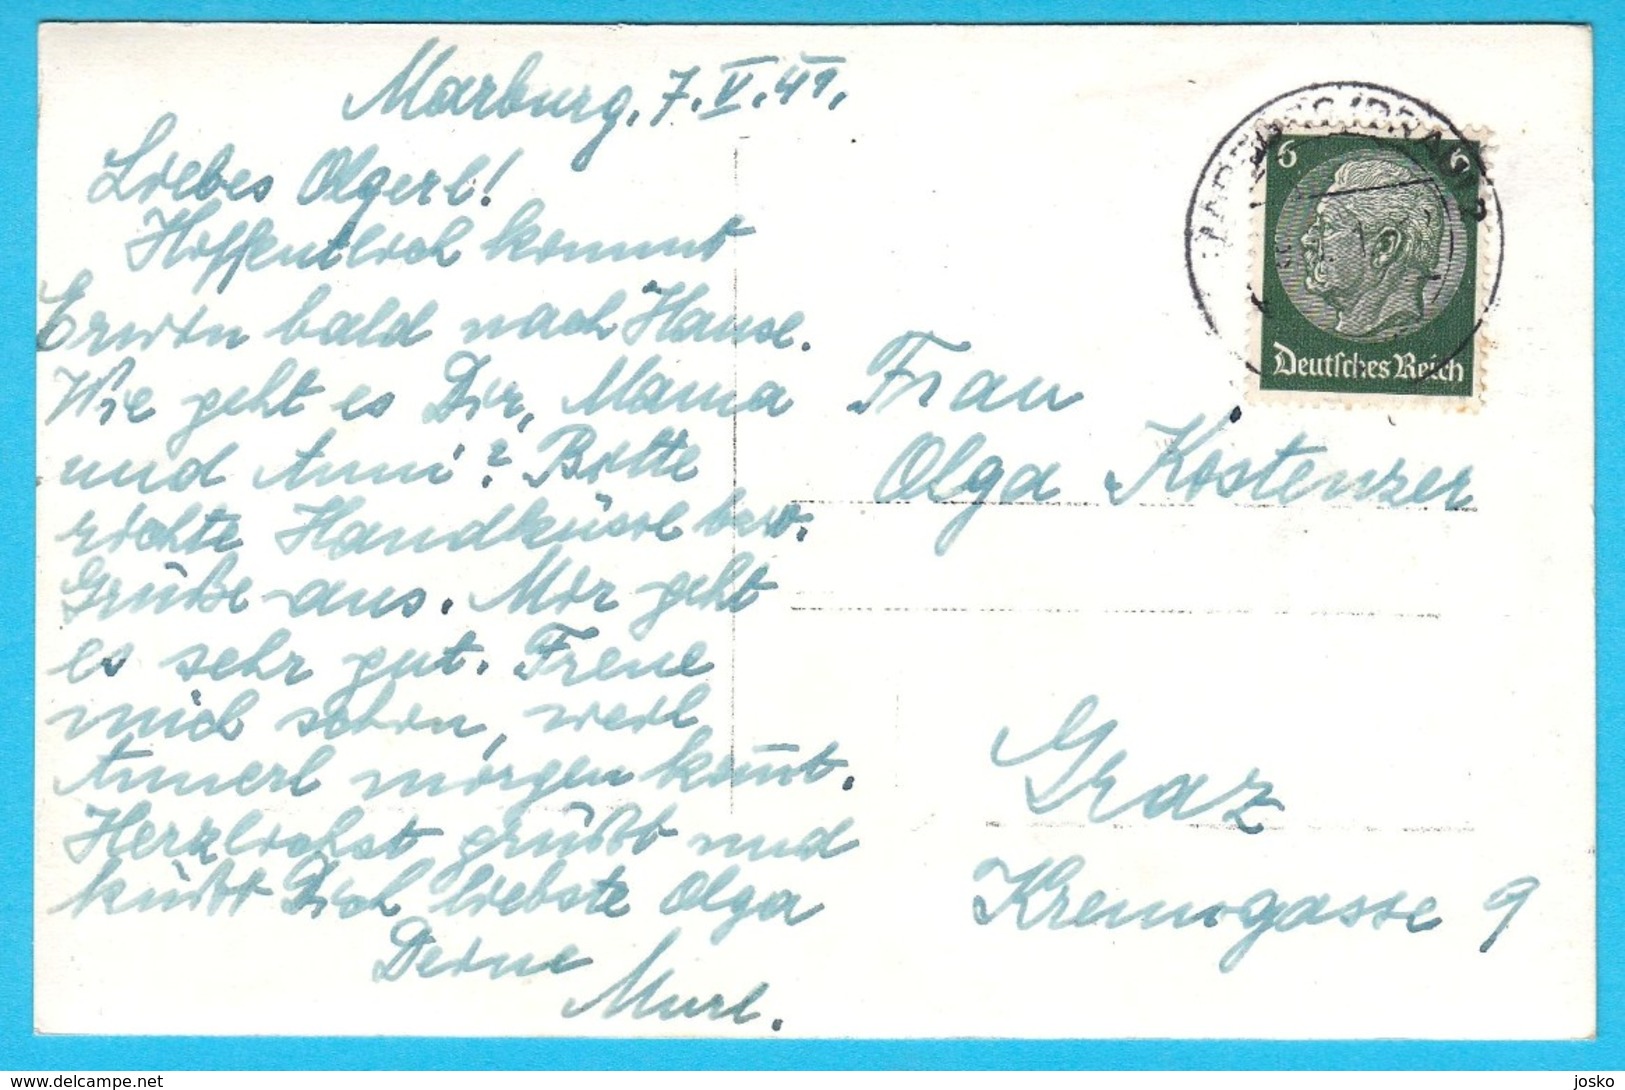 Marburg, 7.V.41.
Liebes Olgerl!
Hoffentlich kommt
Erwin bald nach Hause.
Wie geht es Dir, Mama
und Anni? Bitte
richte Handküsse bzw.
Grüße aus. Mir geht
es sehr gut. Freue
mich schon, weil
Annerl morgen kom̅t.
Herzlichst grüßt und
küßt Dich liebste Olga
Deine
Murl.
6 6
Deutsches Reich
Frau
Olga Kostenzer
Graz
Kremsgasse 9
delcampe.net
josko